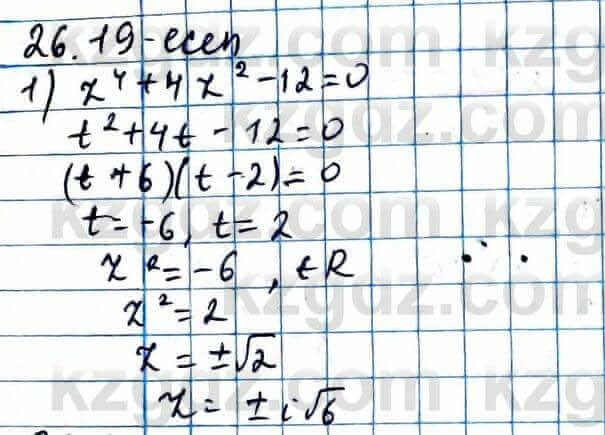 26.19-есеп
1) z⁴+4z²-12=0
t²+4t-12=0
(t+6)(t-2)=0
t=-6, t=2
z²=-6, ∉R
z²=2
z=±√2
z=±i√6
kzgdz.com